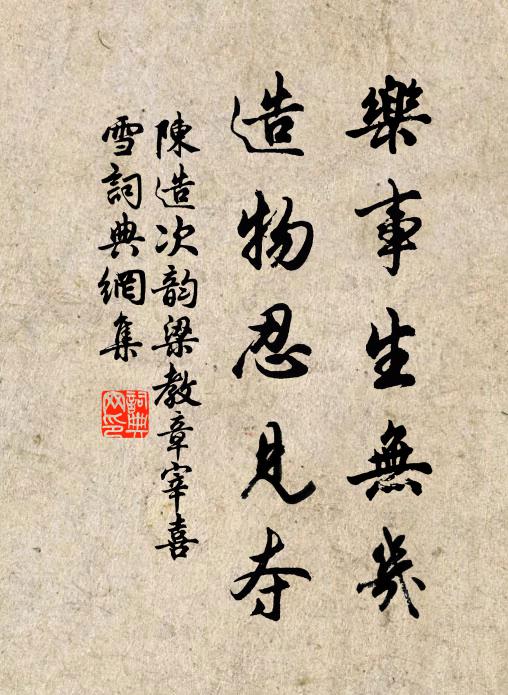 樂事生無幾
造物忍見夺
陳造次韵梁教章宰喜
雪詞典網集
詞典網印